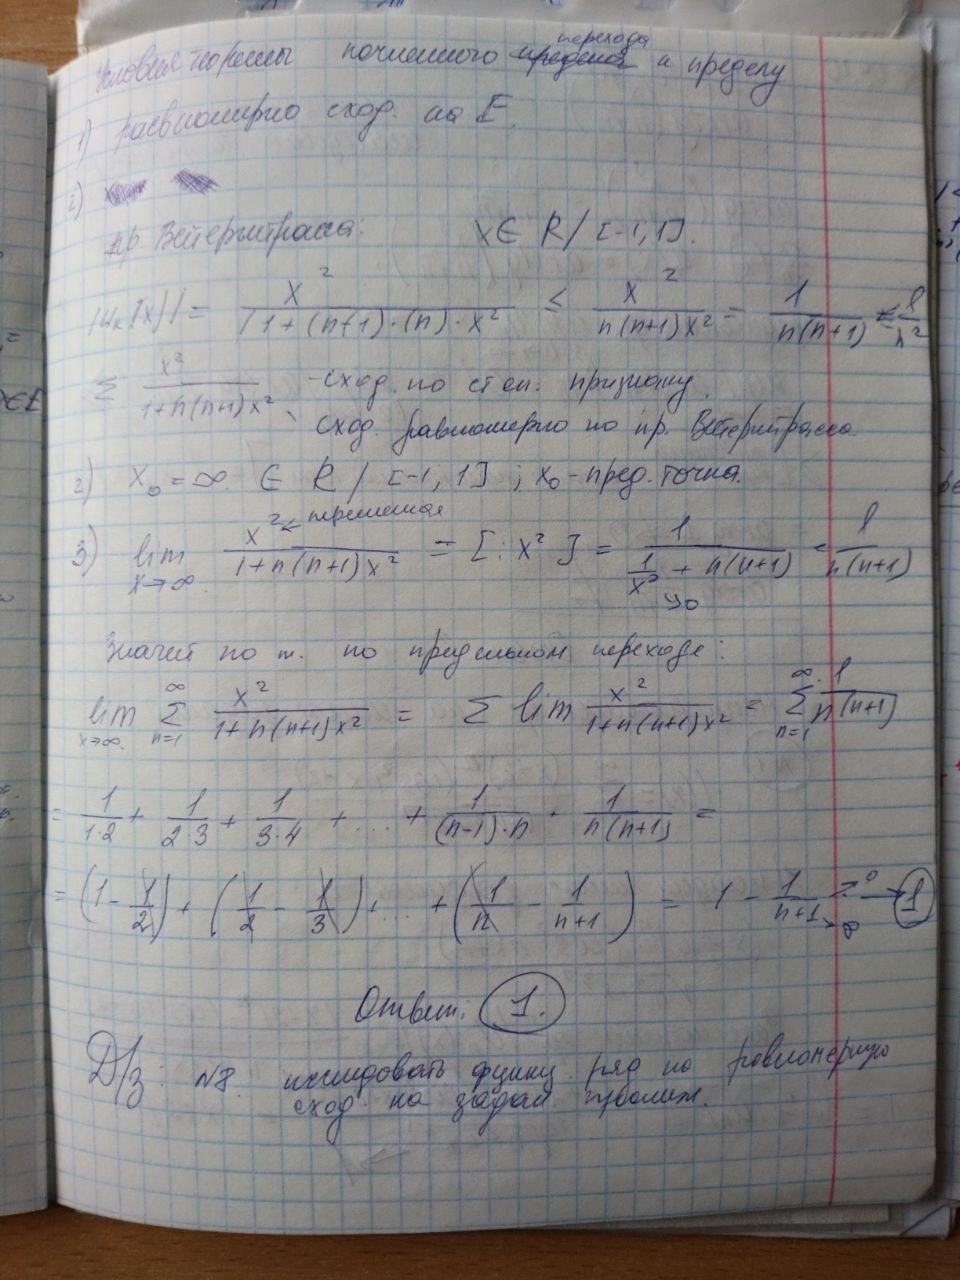 Условия теоремы почленного перехода к пределу
1) равномерно сход. на E.
2)
пр. Вейерштрасса: x ∈ R / [-1, 1].
|Uₙ(x)| = x² / (1 + (n+1)·(n)·x²) ≤ x² / (n(n+1)x²) = 1 / (n(n+1)) ≤ 1/n²
Σ x² / (1+n(n+1)x²) - сход. по степ. признаку.
сход. равномерно по пр. Вейерштрасса
2) x₀ = ∞ ∈ R / [-1, 1] ; x₀ - пред. точка.
3) lim x→∞ x² ← переменная / (1+n(n+1)x²) = [: x²] = 1 / (1/x² + n(n+1)) = 1 / (n(n+1))
↘0
Значит по т. по предельном переходе:
lim x→∞ Σ n=1 ∞ x² / (1+n(n+1)x²) = Σ lim x² / (1+n(n+1)x²) = Σ n=1 ∞ 1 / (n(n+1))
= 1/(1·2) + 1/(2·3) + 1/(3·4) + ... + 1/((n-1)·n) + 1/(n(n+1)) =
= (1 - 1/2) + (1/2 - 1/3) + ... + (1/n - 1/(n+1)) = 1 - 1/(n+1) →0 → 1
→∞
Ответ: 1.
Д/з: №8. исследовать функц. ряд на равномерную
сход. на задан.